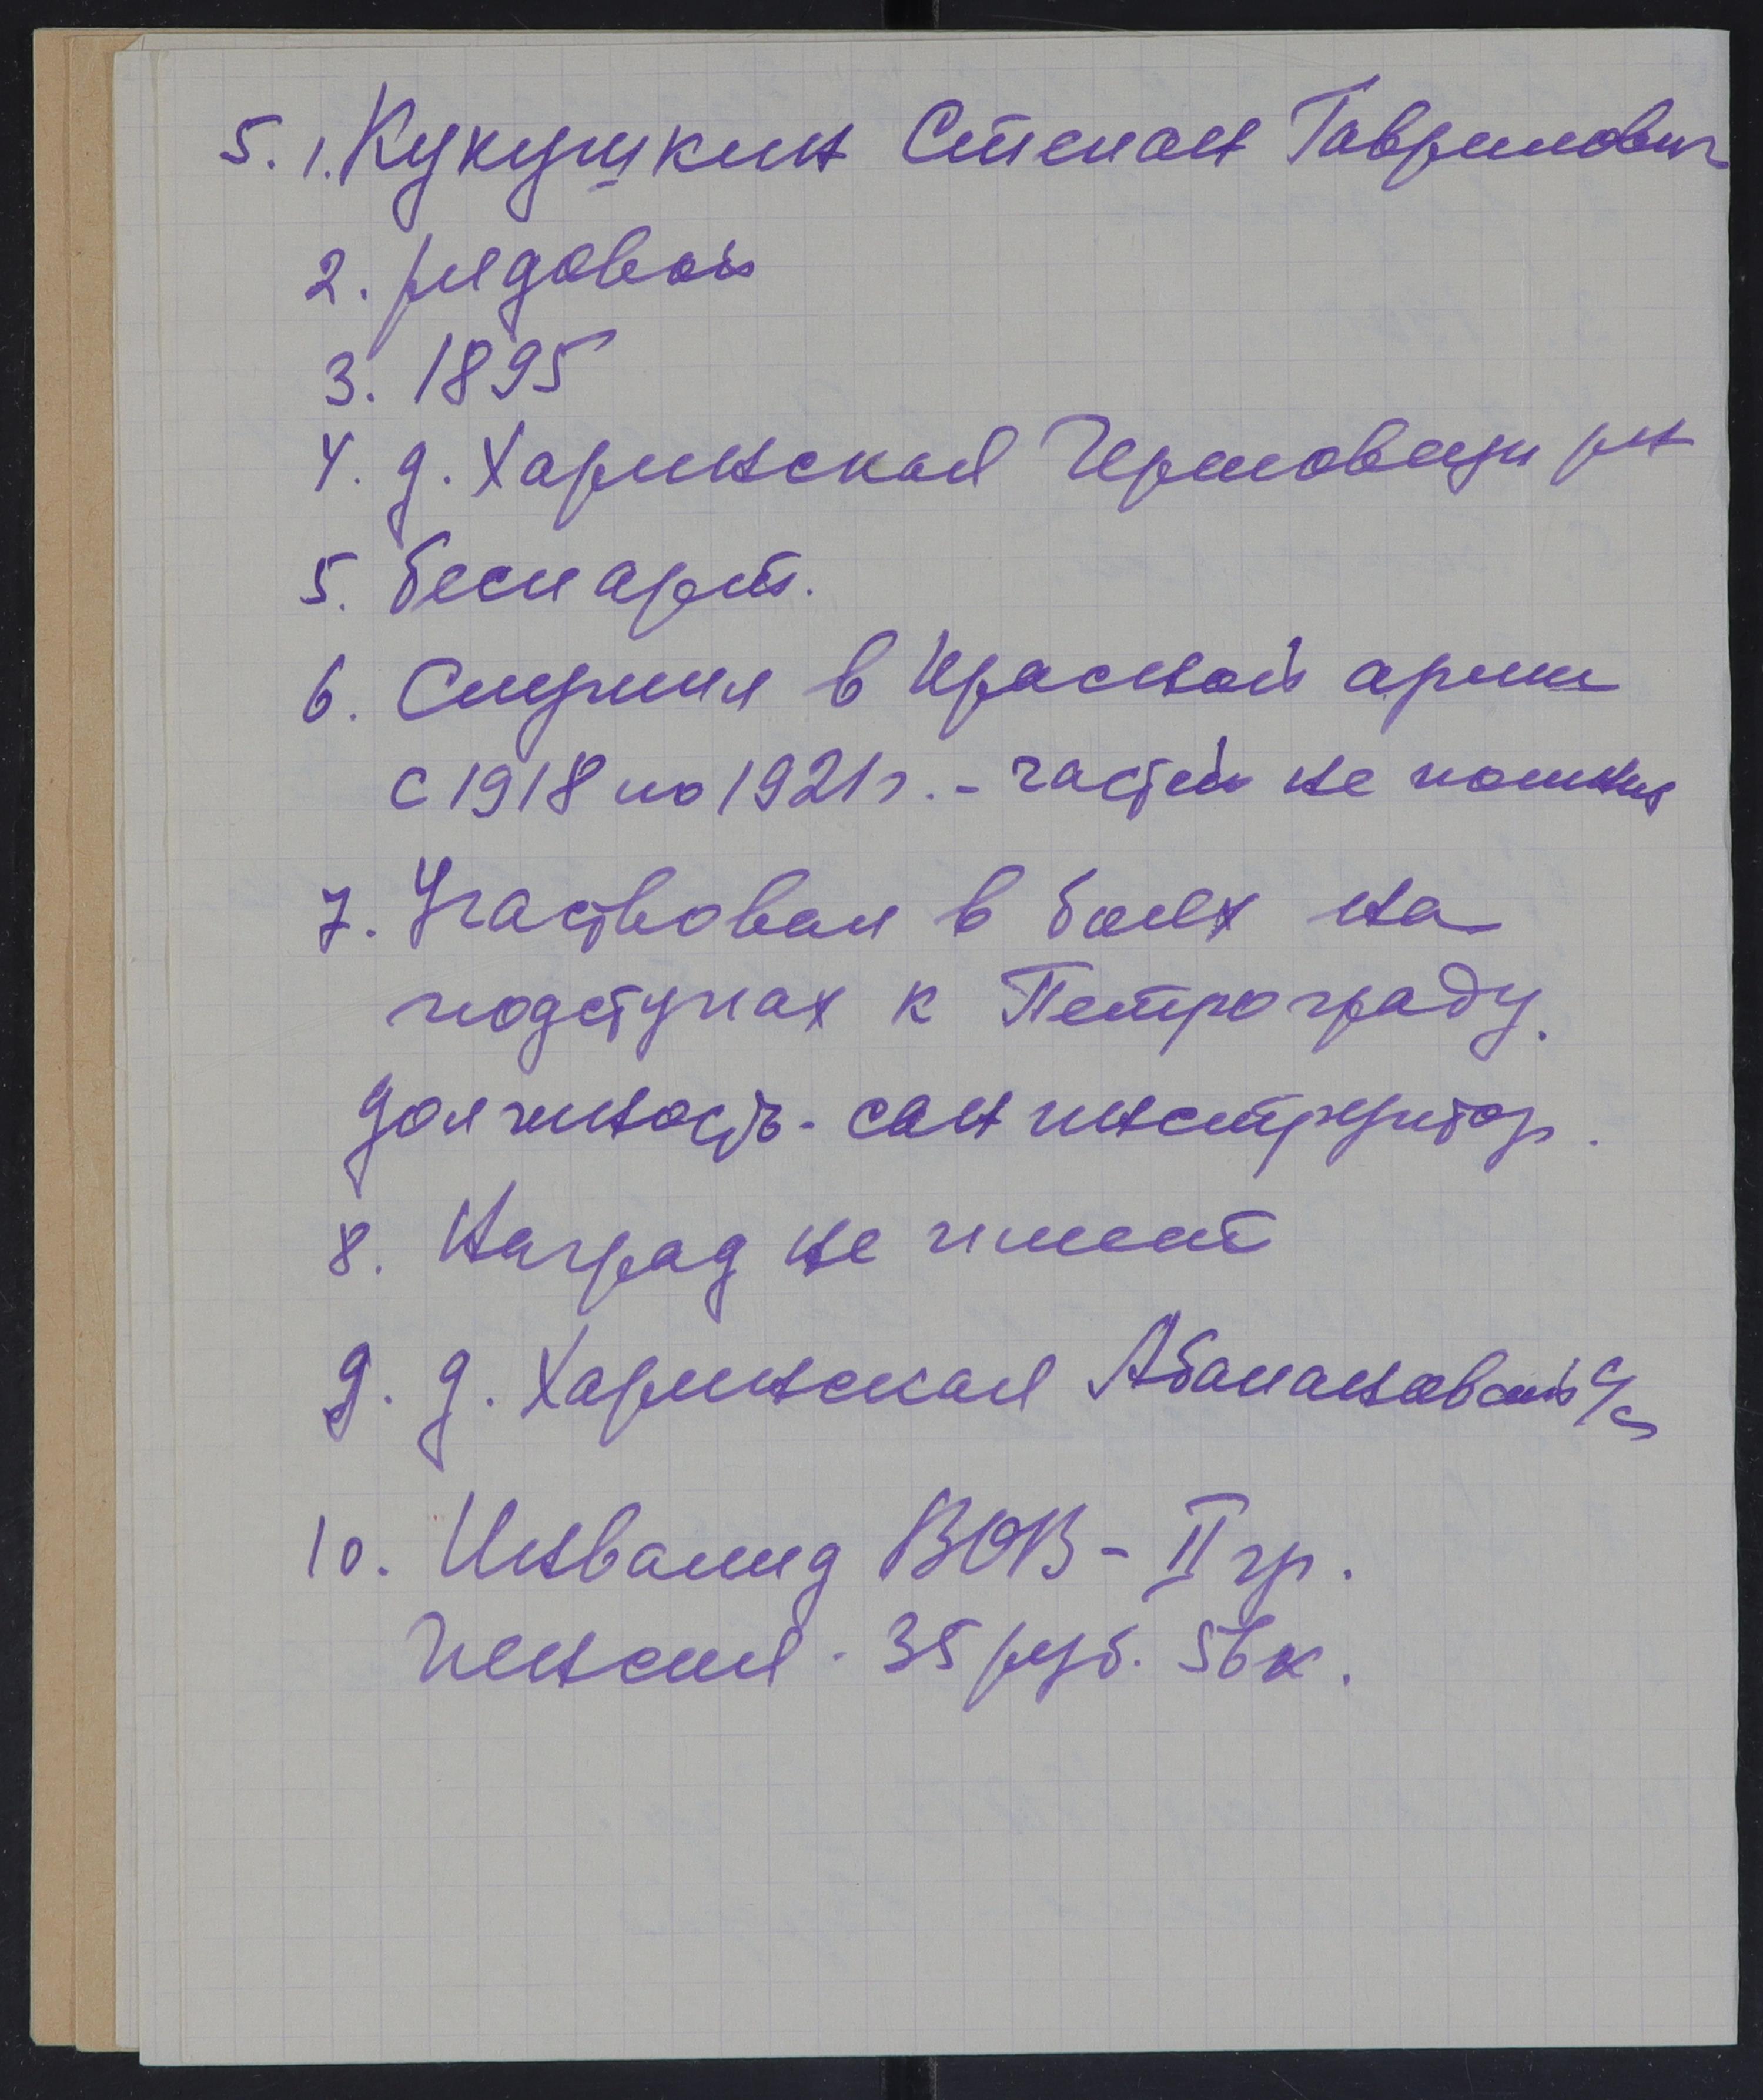 5. 1. Кукушкин Степан Гаврилович
2. рядовой
3. 1895
4. д. Харинская Черновецк рн
5. беспарт.
6. Служил в Красной армии
с 1918 по 1921 г. - частей не помнит
7. Участвовал в боях на
подступах к Петрограду.
Должность - санинструктор.
8. Наград не имеет
9. д. Харинская Абакановский с/с
10. Инвалид ВОВ - II гр.
Пенсия - 35 руб. 56 к.